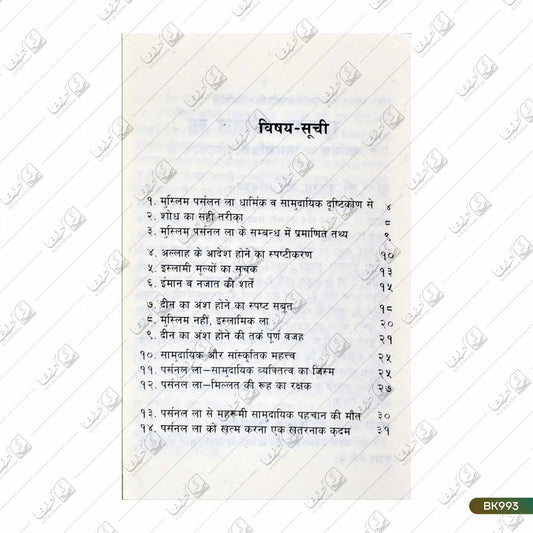 विषय-सूची
१. मुस्लिम पर्सलन ला धार्मिक व सामुदायिक दृष्टिकोण से ४
२. शोध का सही तरीका ८
३. मुस्लिम पर्सनल ला के सम्बन्ध में प्रमाणित तथ्य ९
४. अल्लाह के आदेश होने का स्पष्टीकरण १०
५. इस्लामी मूल्यों का सूचक १३
६. ईमान व नजात की शर्तें १५
७. दीन का अंश होने का स्पष्ट सबूत १८
८. मुस्लिम नहीं, इस्लामिक ला २०
९. दीन का अंश होने की तर्क पूर्ण वजह २१
१०. सामुदायिक और सांस्कृतिक महत्त्व २५
११. पर्सनल ला—सामुदायिक व्यक्तित्व का जिस्म २५
१२. पर्सनल ला—मिल्लत की रूह का रक्षक २७
१३. पर्सनल ला से महरूमी सामुदायिक पहचान की मौत ३०
१४. पर्सनल ला को ख़त्म करना एक ख़तरनाक क़दम ३१
BK993